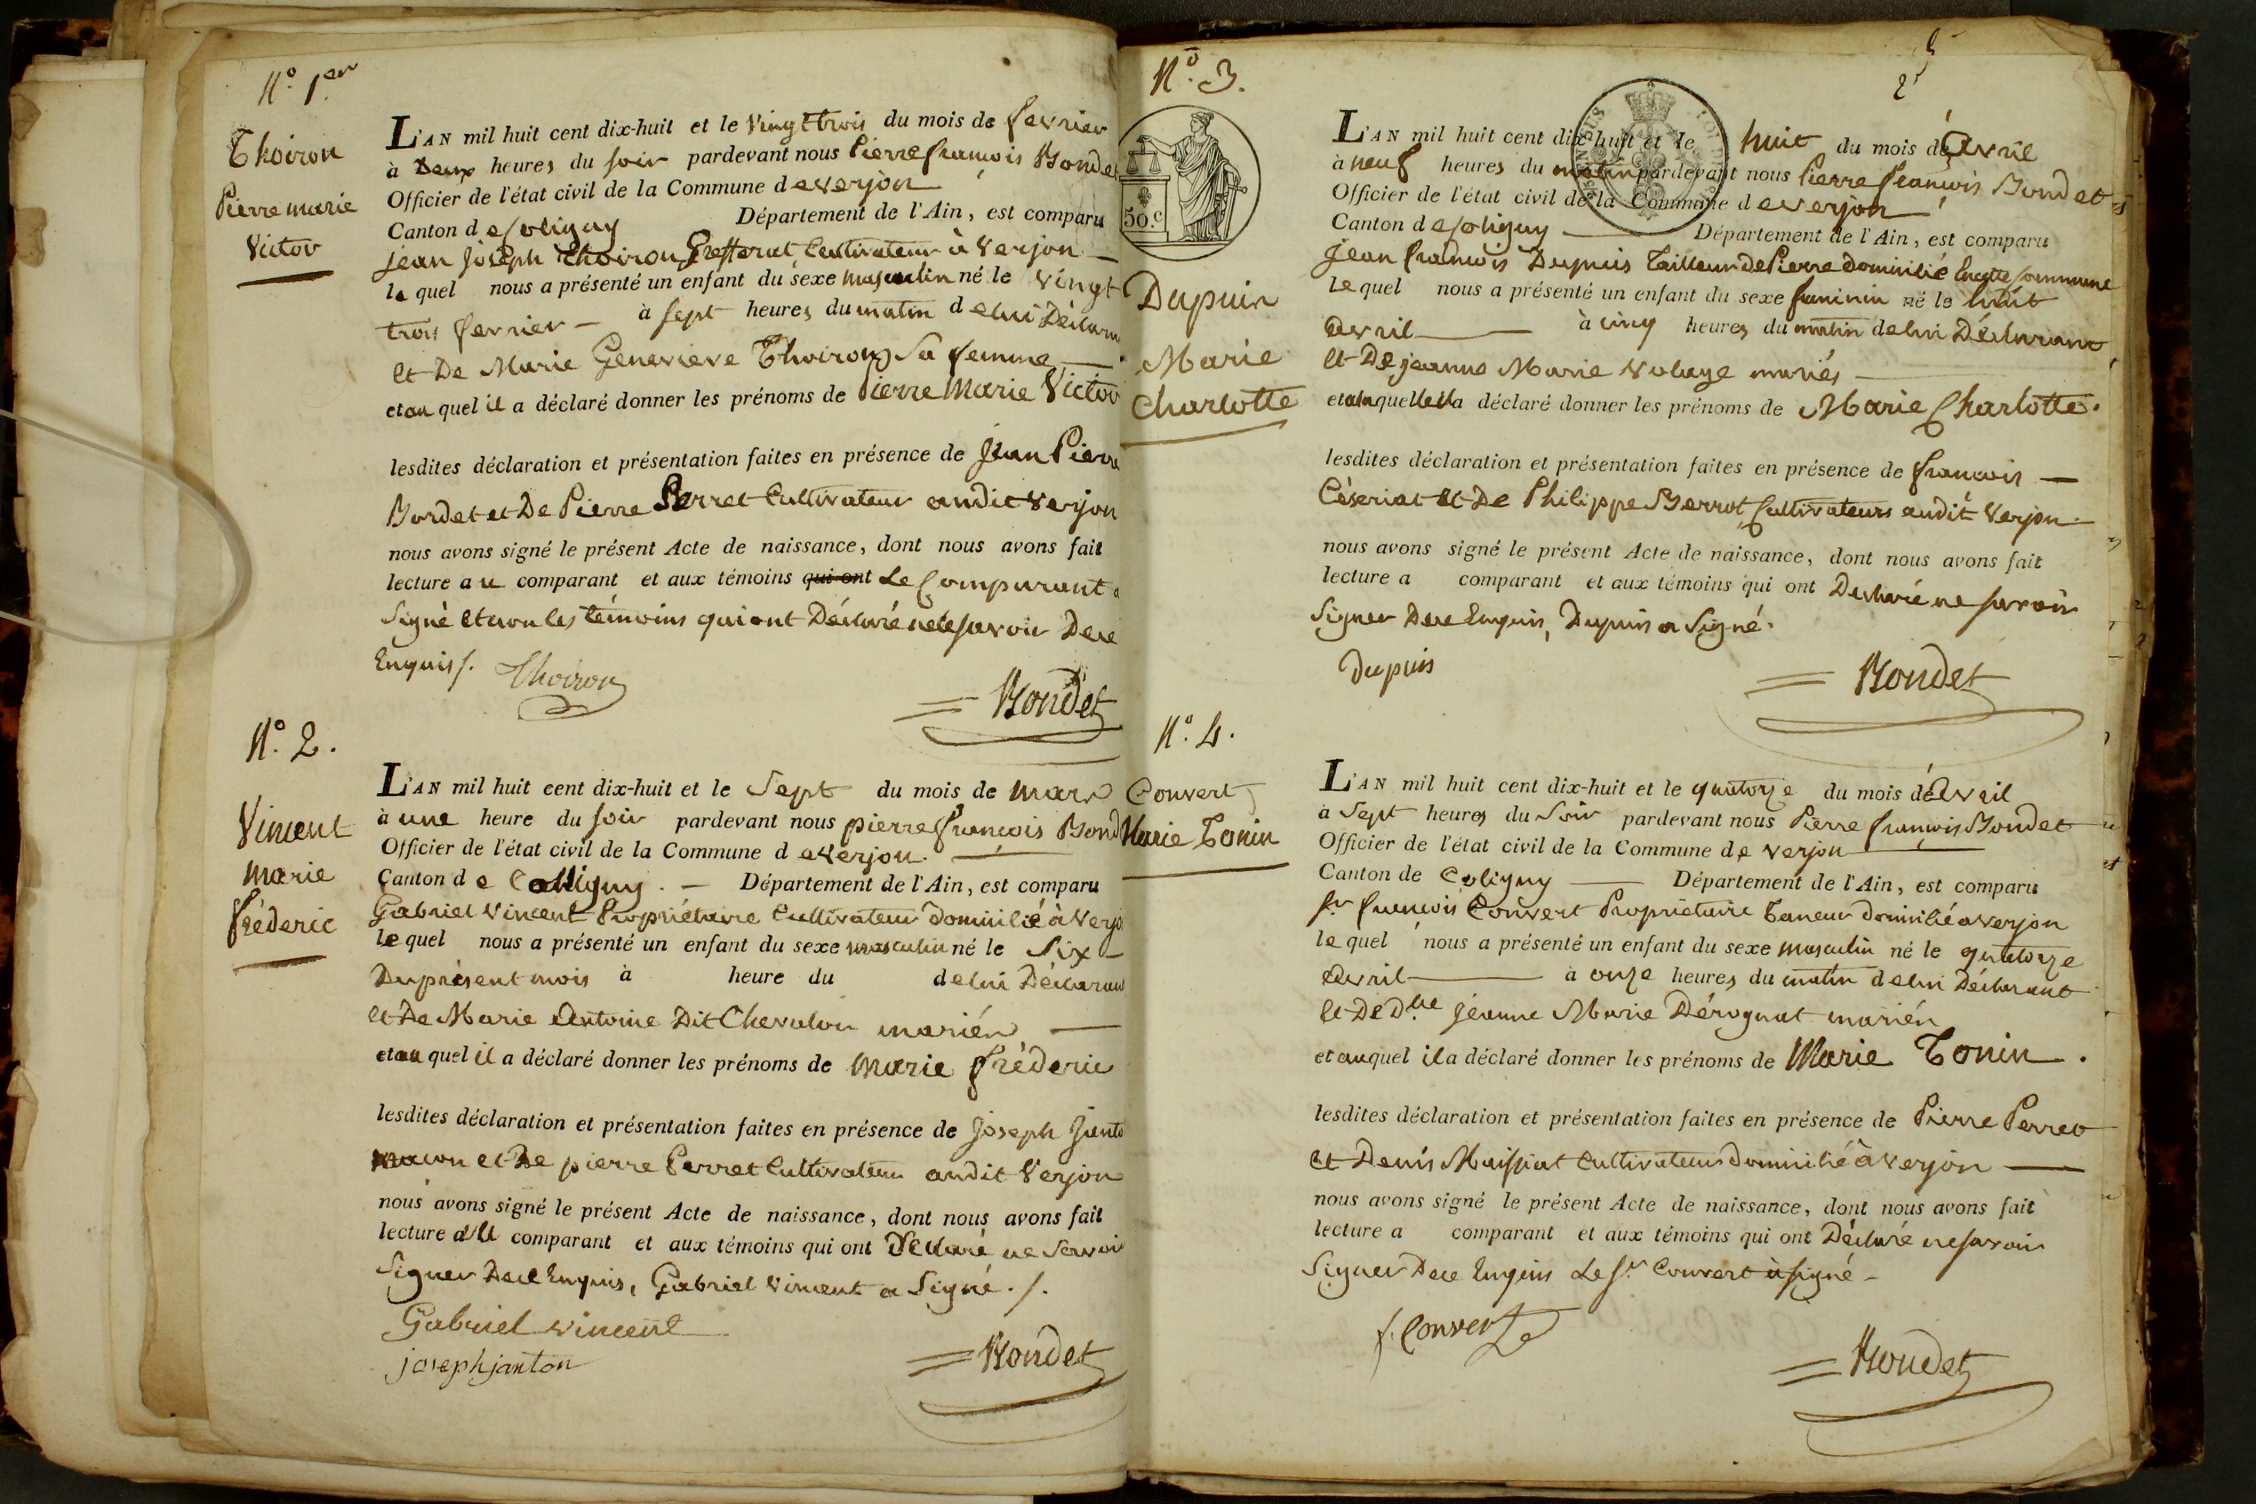 N.º 1.er
Thoiron
Pierre marie
Victor
L'AN mil huit cent dix-huit et le Vingt trois du mois de fevrier
à Deux heures du soir pardevant nous Pierre françois Bondet
Officier de l'état civil de la Commune de verjon
Canton de Coligny Département de l'Ain, est comparu
jean joseph Thoiron Cultivateur à Verjon
le quel nous a présenté un enfant du sexe masculin né le vingt
trois fevrier à sept heures du matin de lui Déclarant
et De Marie Genevieve Thoiron Sa femme
et au quel il a déclaré donner les prénoms de Pierre Marie Victor
lesdites déclaration et présentation faites en présence de Jean Pierre
Bordet et De Pierre Perret Cultivateur audit Verjon
nous avons signé le présent Acte de naissance, dont nous avons fait
lecture au comparant et aux témoins qui ont Le Comparant a
Signé et non les témoins qui ont Déclaré ne le savoir De ce
Enquis /. Thoiron
Bondet
N.º 2.
Vincent
Marie
fréderic
L'AN mil huit cent dix-huit et le Sept du mois de mars
à une heure du soir pardevant nous pierre françois Bond
Officier de l'état civil de la Commune de verjon.
Canton de Colligny. Département de l'Ain, est comparu
Gabriel Vincent Propriétaire Cultivateur domicilié à Verjo
le quel nous a présenté un enfant du sexe masculin né le Six
Du présent mois à heure du de lui Déclarant
et De Marie Antoine Dit Chevalon mariés
et au quel il a déclaré donner les prénoms de Marie fréderic
lesdites déclaration et présentation faites en présence de Joseph Janto
macon et De pierre Perret Cultivateur audit Verjon
nous avons signé le présent Acte de naissance, dont nous avons fait
lecture au comparant et aux témoins qui ont Déclaré ne Savoir
Signer De ce Enquis, Gabriel Vincent a Signé. /.
Gabriel vincent
joseph janton
Bondet
N.º 3.
50.c
Dupuis
Marie
Charlotte
2
L'AN mil huit cent dix-huit et le huit du mois d'Avril
à neuf heures du matin pardevant nous Pierre françois Bondet
Officier de l'état civil de la Commune de verjon
Canton de Coligny Département de l'Ain, est comparu
Jean francois Dupuis Tailleur de Pierre domicilié En cette Commune
le quel nous a présenté un enfant du sexe feminin né le huit
avril à cinq heures du matin de lui Déclarant
et De jeanne Marie Vulaye mariés
et a laquelle il a déclaré donner les prénoms de Marie Charlotte.
lesdites déclaration et présentation faites en présence de francois
Céseriat et De Philippe Berrot Cultivateurs audit Verjon
nous avons signé le présent Acte de naissance, dont nous avons fait
lecture a comparant et aux témoins qui ont Declaré ne savoir
Signer De ce Enquis, Dupuis a Signé.
Dupuis
Bondet
N.º 4.
Convert
Marie Tonin
L'AN mil huit cent dix-huit et le quatorze du mois d'Avril
à Sept heures du Soir pardevant nous Pierre françois Bondet
Officier de l'état civil de la Commune de verjon
Canton de Coligny Département de l'Ain, est comparu
Sr francois Convert Propriétaire Taneur domicilié a verjon
le quel nous a présenté un enfant du sexe masculin né le quatorze
avril à onze heures du matin de lui Déclarant
et De D.lle Jeanne Marie Dérognat mariés
et auquel il a déclaré donner les prénoms de Marie Tonin.
lesdites déclaration et présentation faites en présence de Pierre Perret
et Denis Maissiat Cultivateurs domicilié à Verjon
nous avons signé le présent Acte de naissance, dont nous avons fait
lecture a comparant et aux témoins qui ont Déclaré ne savoir
Signer De ce Enquis Le Sr Convert à signé
f. Convert
Bondet